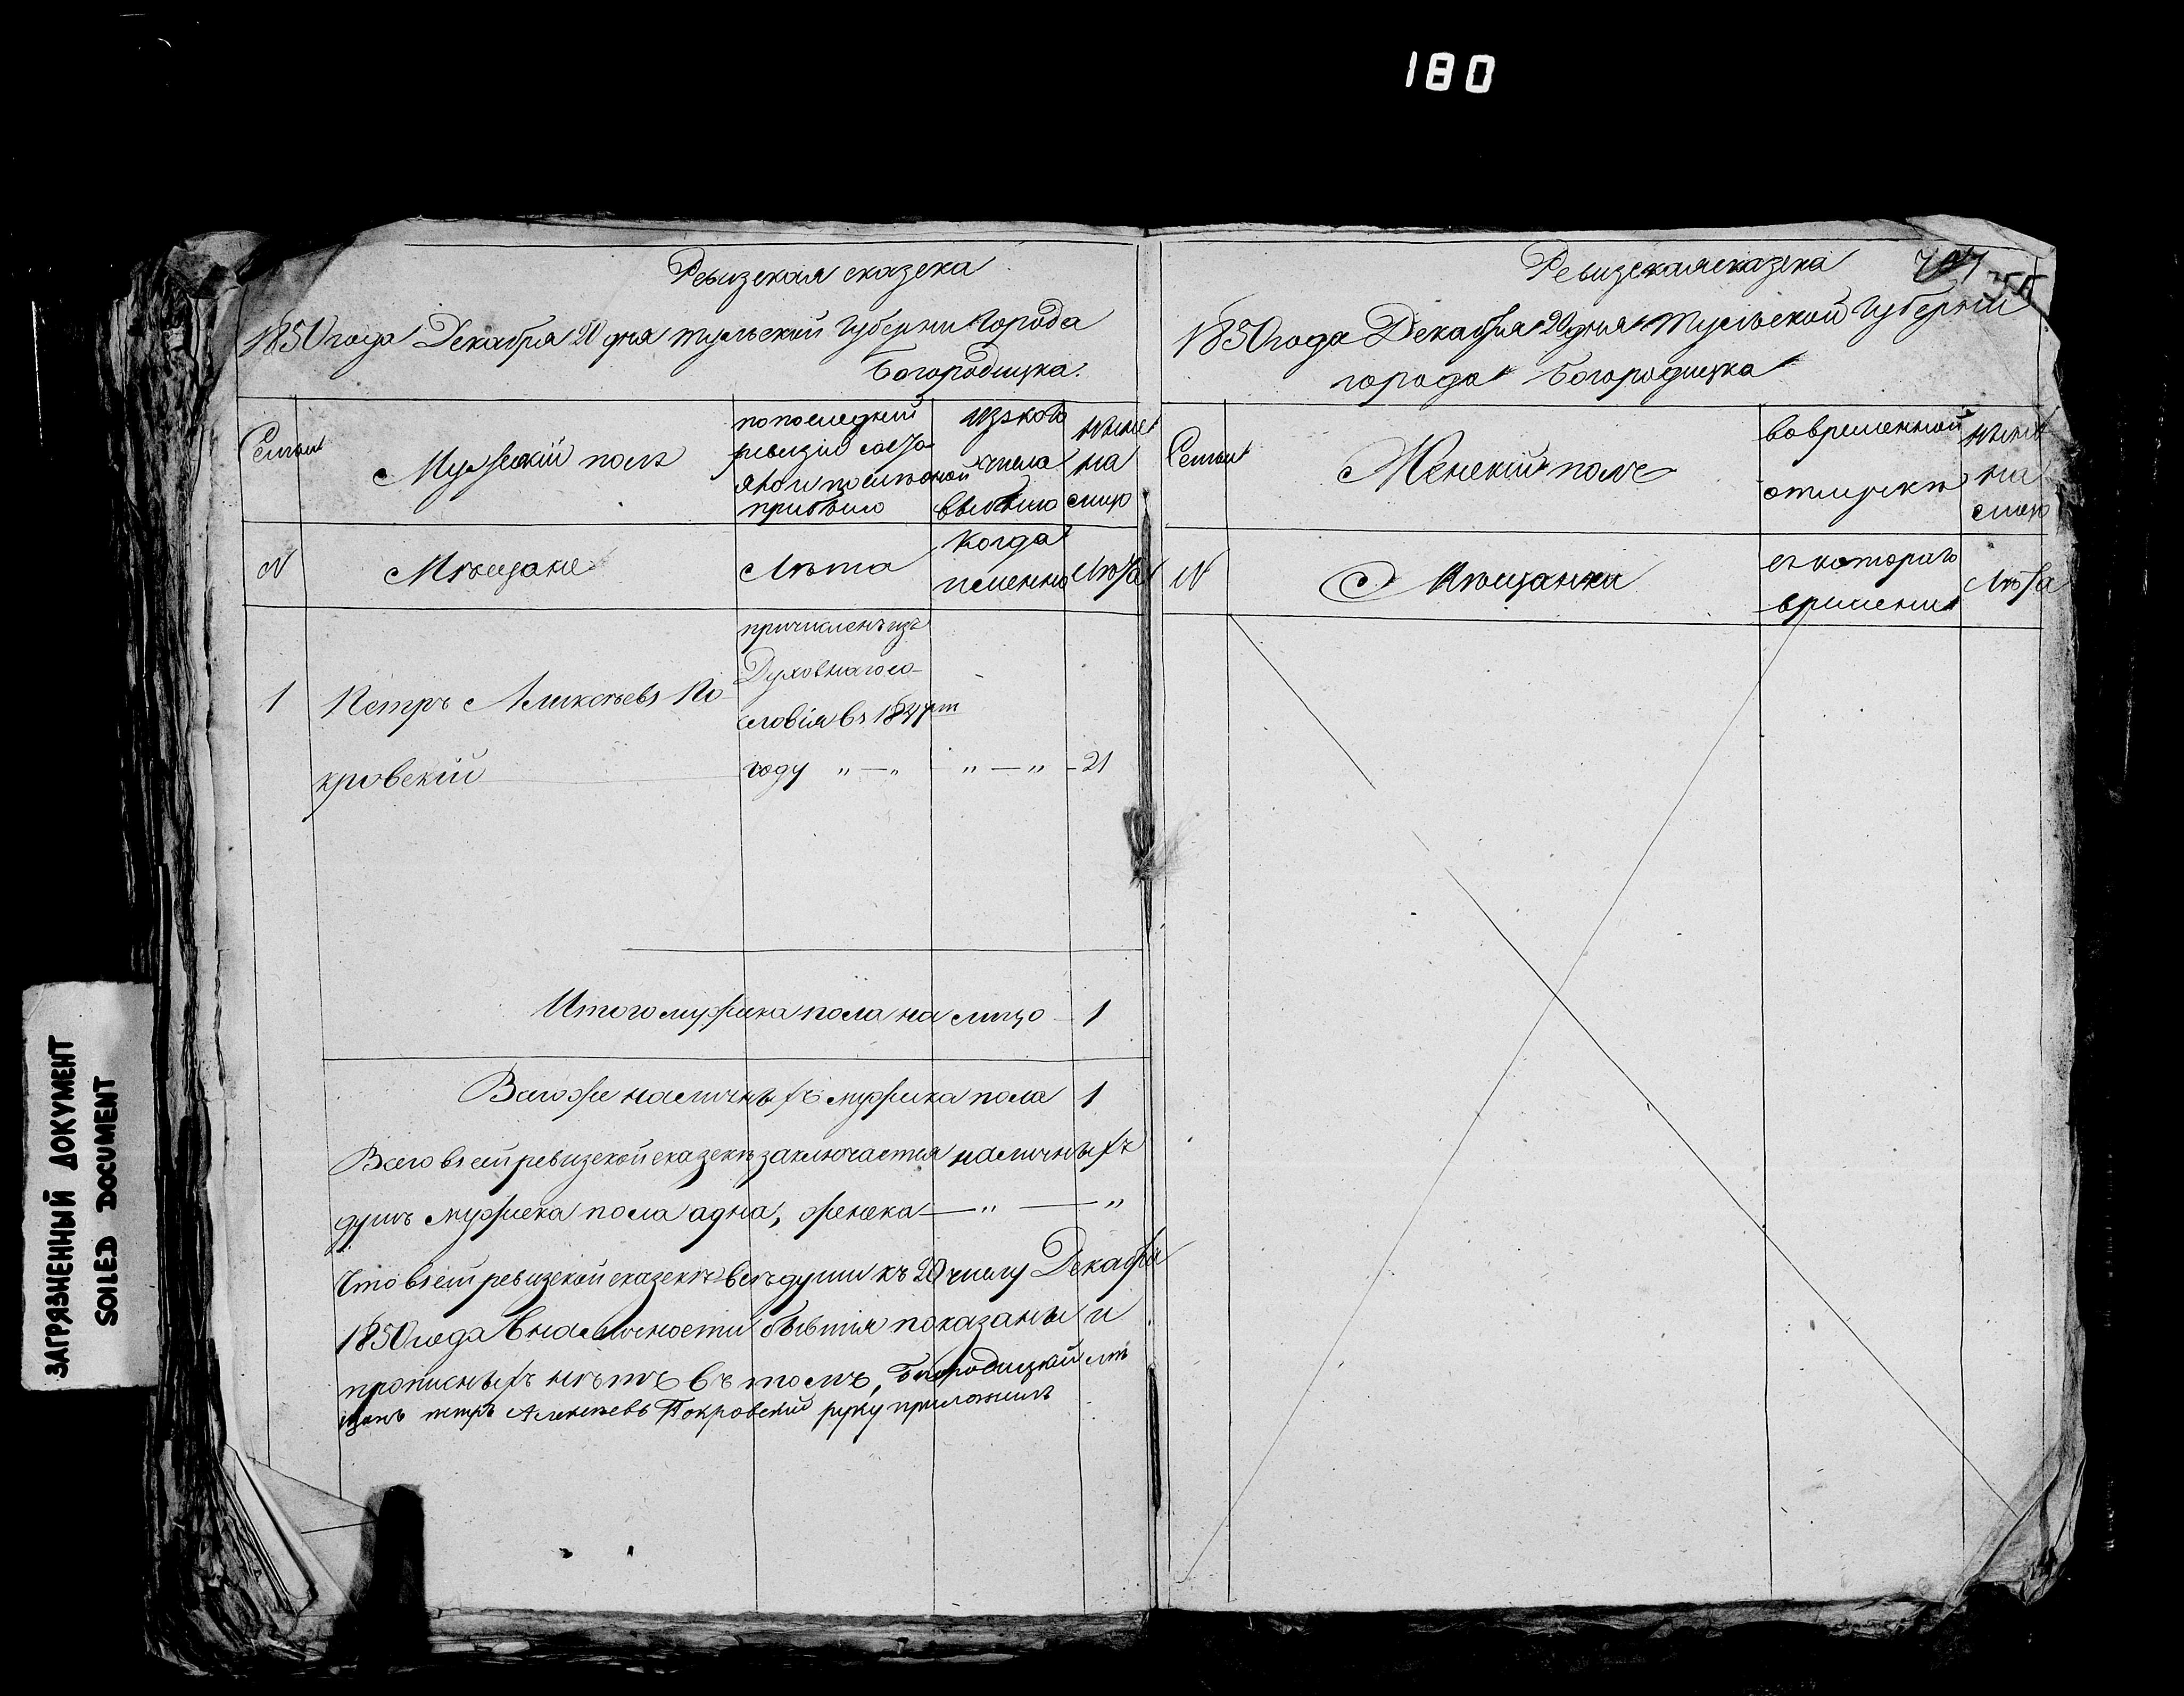 180
Ревизская сказска
1850 года Декабря 20 дня Тульской Губернии Города
Богородицка.
Семьи
Мужской полъ
по последний
ревизии состо
яло и после оной
прибыло
Изъ того
числа
выбыло
Ныне
на
лицо
N
Мещане
Лѣта
Когда
именно
Лѣта
1
Петръ Алексѣевъ По-
кровский
причисленъ изъ
Духовнаго со-
словія въ 1847м
году " — "
" — "
21
Итого мужска пола на лицо 1
Всего же наличныхъ мужска пола 1
Всего в сей ревизской сказскѣ заключается наличныхъ
душъ мужска пола адна, женска — " — "
Что в сей ревизской сказскѣ всѣ души къ 20 числу Декабря
1850 года в наличности бывшія показаны и
прописныхъ нѣтъ въ томъ, Богородицкий мѣ
щанъ петръ Алексеевъ Покровский руку приложилъ
Ревизская сказска
1850 года Декабря 20 дня Тульской Губернии
города Богородицка
Семьи
Женский полъ
во временной
отлучкѣ
Ныне
на
лицо
N
Мѣщанки
съ котораго
времени
Лѣта
ЗАГРЯЗНЕННЫЙ ДОКУМЕНТ
SOILED DOCUMENT